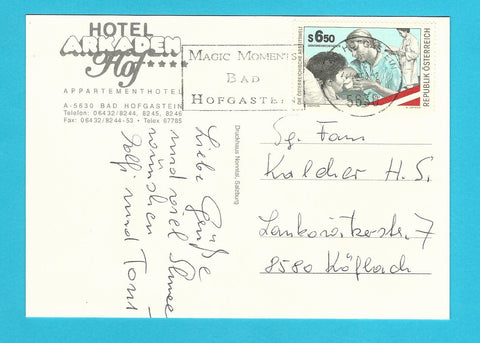 HOTEL
ARKADEN
Hof****
APPARTEMENTHOTEL
A-5630 BAD HOFGASTEIN
Telefon: 06432/8244, 8245, 8246
Fax: 06432/8244-53 • Telex 67785
MAGIC MOMENTS
BAD
HOFGASTEIN
5630
S 6.50
DIE ÖSTERREICHISCHE ARBEITSWELT
REPUBLIK ÖSTERREICH
Druckhaus Nonntal, Salzburg
Liebe Grüße
und viel Schnee
wünschen
und Toni
Sg. Fam
Kalcher H. S.
7
8580 Köflach